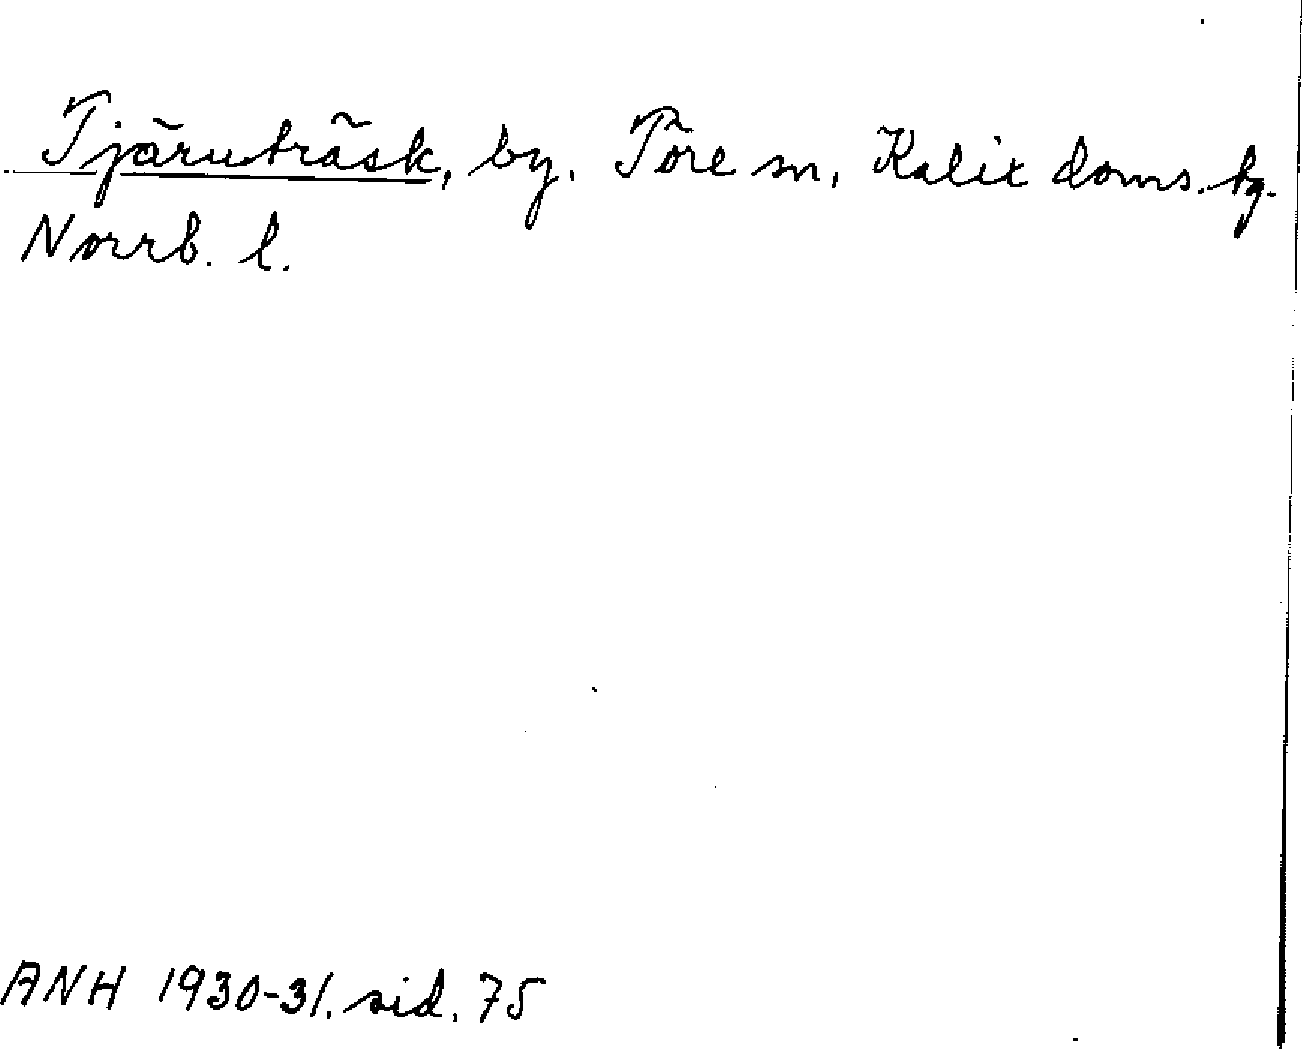 Tjäruträsk, by. Töre sn, Kalix doms. hg.
Norrb. l.
ANH 1930-31. sid. 75